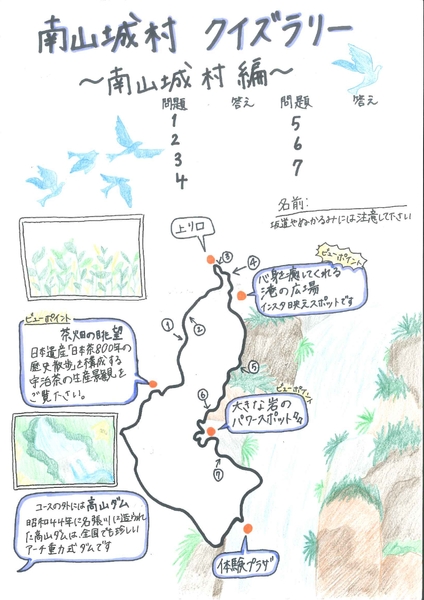 南山城村 クイズラリー
〜南山城村編〜
問題 答え 問題 答え
1 5
2 6
3 7
4
名前:
坂道やぬかるみには注意して下さい
上り口
③
④
ビューポイント
心身を癒してくれる
滝の広場
インスタ映えスポットです
ビューポイント
茶畑の眺望
日本遺産「日本茶800年の
歴史散歩」を構成する
宇治茶の生産景観を
ご覧ください。
①
②
⑤
⑥
ビューポイント
大きな岩の
パワースポット
⑦
コースの外には高山ダム
昭和44年に名張川に造られ
た高山ダムは、全国でも珍しい
アーチ重力式ダムです
体験プラザ